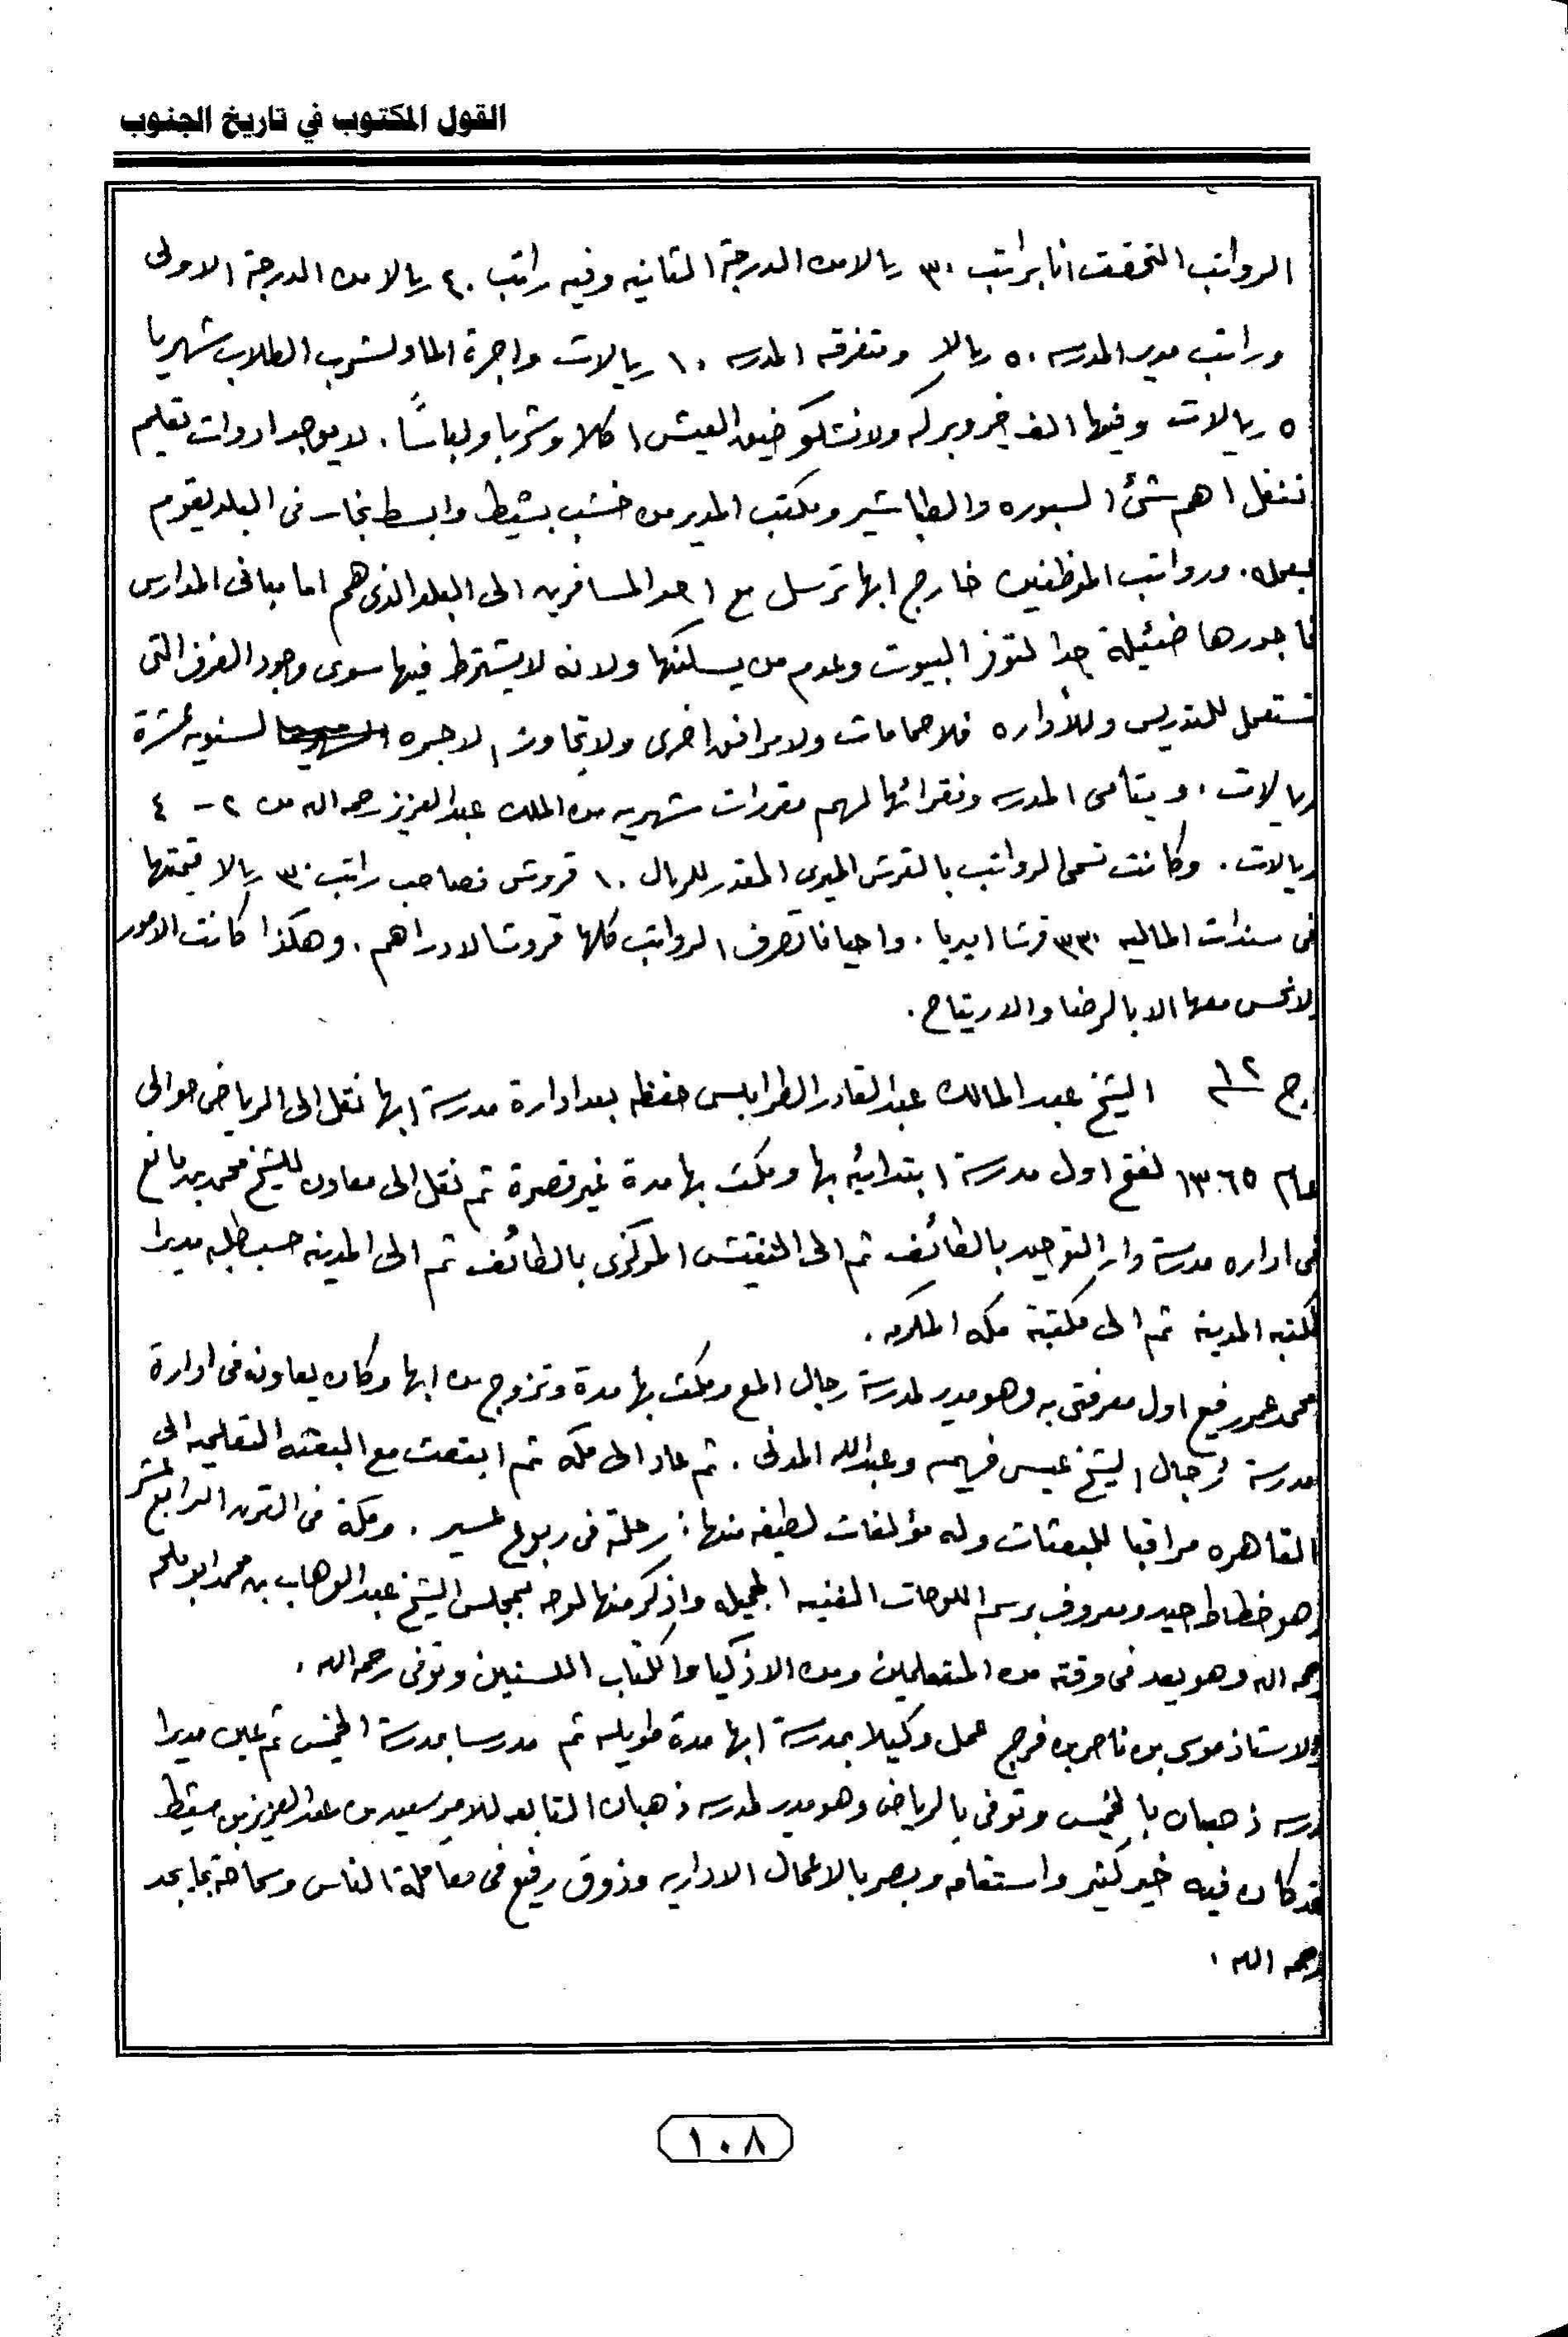 القول المكتوب في تاريخ الجنوب
الرواتب التحقت انا براتب ٣٠ ريالا من الدرجة الثانيه وفيه راتب ٤٠ ريالا من الدرجة الاولى
وراتب مدير المدرسه ٥٠ ريالا ومتفرقه المدرسه ١٠ ريالات واجرة الماء لشرب الطلاب شهريا
٥ ريالات وفيها الف خير وبركه ولا نشكو ضيق العيش اكلا وشربا ولباسًا. لا يوجد ادوات تعليم
اهم شئ السبوره والطباشير ومكتب المدير من خشب بسيط وابسط نجار في البلد يقوم
بعمله. ورواتب الموظفين خارج ابها ترسل مع احد المسافرين الى البلد الذى هم اما مبانى المدارس
فاجورها ضئيلة جدا لتوفر البيوت وعدم من يسكنها ولانه لا يشترط فيها سوى وجود الغرف التى
تستعمل للتدريس وللأداره فلا حمامات ولا مرافق اخرى ولا تجاوز الاجره السنويه عشرة
ريالات. ويتامى المدرسه وفقرائها لهم مقررات شهريه من الملك عبد العزيز رحمه الله من ٢ - ٤
ريالات. وكانت تسمى الرواتب بالقرش الميرى المقدر للريال ١٠ قروش فصاحب راتب ٣٠ ريالا قيمتها
فى سندات الماليه ٣٣٠ قرشا اميريا. واحيانا تصرف الرواتب كلها قروشا لا دراهم. وهكذا كانت الامور
ولا نحس معها الا بالرضا والارتياح.
ج ١٢ الشيخ عبد المالك عبد القادر الطرابلسى حفظه بعد ادارة مدرسة ابها نقل الى الرياض حوالي
عام ١٣٦٥ لفتح اول مدرسة ابتدائيه بها ومكث بها مدة غير قصيرة ثم نقل الى معاون للشيخ محمد بن مانع
فى اداره مدرسة دار التوحيد بالطائف ثم الى التفتيش المركزى بالطائف ثم الى المدينه حسب طلبه مديرا
لمكتبه المدينه ثم الى مكتبة مكه المكرمه.
محمد عمر رفيع اول معرفتى به وهو مدير لمدرسة رجال المع ومكث بها مدة وتزوج من ابها وكان يعاونه فى ادارة
مدرسة رجال الشيخ عيسى فهيم وعبد الله المدنى. ثم عاد الى مكه ثم ابتعث مع البعثه التعليميه الى
القاهره مراقبا للبعثات وله مؤلفات لطيفه منها: رحلة فى ربوع عسير. ومكة فى القرن الرابع عشر
وهو خطاط جيد ومعروف برسم اللوحات الفنيه الجميله واذكر منها لوحه بمجلس الشيخ عبد الوهاب بن محمد ابو ملحه
رحمه الله وهو يعد فى وقته من المتعلمين ومن الاذكيا والكتاب اللسنين وتوفى رحمه الله.
والاستاذ موسى بن ناصر بن فرج عمل وكيلا بمدرسة ابها مدة طويله ثم مدرسا بمدرسة الخميس ثم عين مديرا
لمدرسه ذهبان بالخميس وتوفى بالرياض وهو مدير لمدرسه ذهبان التابعه للامير سعيد بن عبد العزيز بن مشيط
فقد كان فيه خير كثير واستقامه وبصر بالاعمال الاداريه وذوق رفيع فى معاملة الناس وسماحة
رحمه الله.
١٠٨